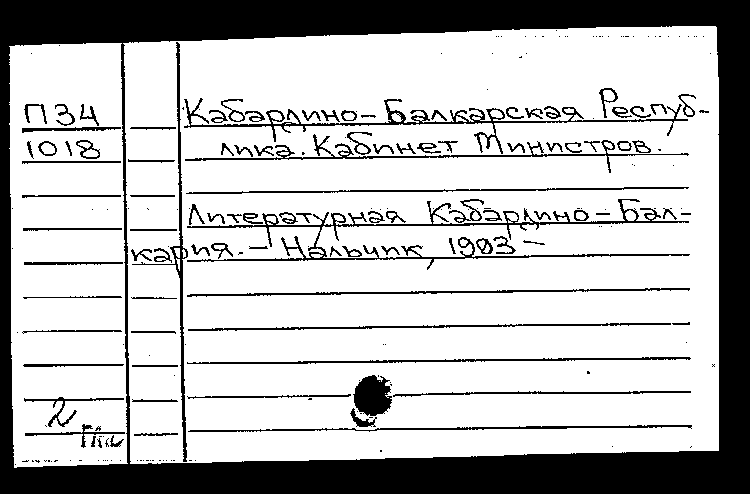 П34 Кабардино-Балкарская Респуб-
1018 лика. Кабинет Министров.
Литературная Кабардино-Бал-
кария. - Нальчик, 1993 -
2